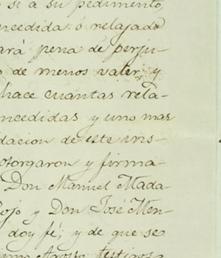 o si a su pedimento
ncedida ó relajada
ará pena de perju
o de menos valer, y
hace cuantas rela
ncedidas y uno mas
dacion de este ins
otorgaron y firma
Don Manuel Mada
Rojo y Don José Men
doy fé, y de que se
Agosto testigos